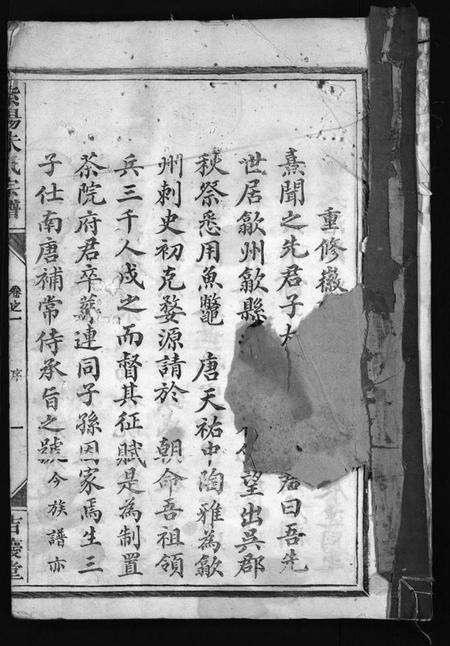 重修徽
熹聞之先君子太 君曰吾先
世居歙州歙縣 望出吳郡
秋祭悉用魚鼈 唐天祐中陶雅為歙
州刺史初克婺源請於 朝命吾祖領
兵三千人戍之而督其征賦是為制置
茶院府君卒葬連同子孫因家焉生三
子仕南唐補常侍承旨之號今族譜亦
紫陽朱氏宗譜 卷之一 序 一